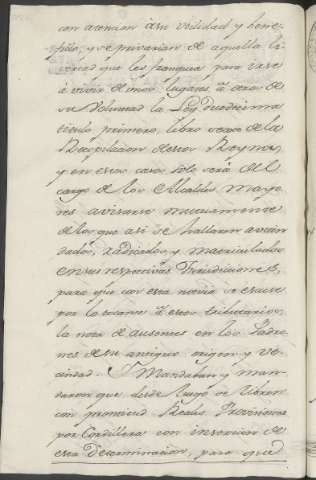 con atencion à su vtilidad y bene-
ficio, y se privarian de aquella li-
vertad que les franquea para varse
à vivir de unos lugares à otros de
su Voluntad la Ley Duodecima
titulo primero, libro sexto de la
Recopilacion de estos Reynos,
y en estos casos solo será del
cargo de los Alcaldes mayo-
res avisarse mutuamente
de los que asi se hallaren avecin
dados, radicados, y matriculados
en sus respectivas Jurisdiciones,
para que con esta noticia se escuse
por lo tocante à estos tributarios
la nota de ausentes en los Padro-
nes de su antiguo origen y ve-
cindad. Y Mandaban y man-
daron que desde luego se libren
con promtitud Reales Provisiones
por Cordillera con insercion de
esta Determinacion, para que